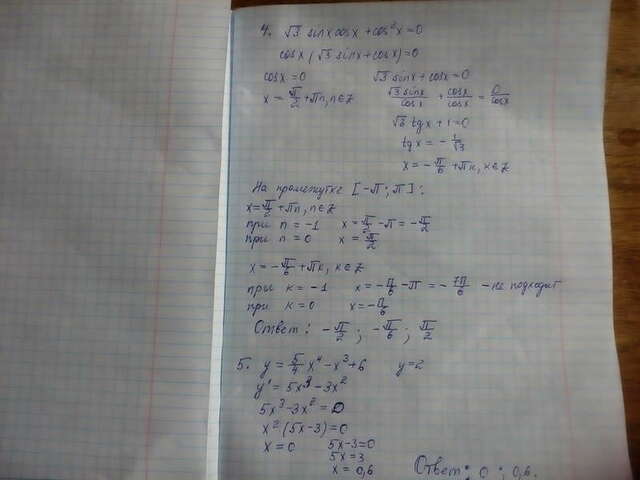 4. √3 sinx cosx + cos²x = 0
cosx (√3 sinx + cosx) = 0
cosx = 0 √3 sinx + cosx = 0
x = π/2 + πn, n∈Z √3 sinx/cosx + cosx/cosx = 0/cosx
√3 tgx + 1 = 0
tgx = -1/√3
x = -π/6 + πk, k∈Z
На промежутке [-π; π]:
x = π/2 + πn, n∈Z
при n = -1 x = π/2 - π = -π/2
при n = 0 x = π/2
x = -π/6 + πk, k∈Z
при k = -1 x = -π/6 - π = -7π/6 - не подходит
при k = 0 x = -π/6
Ответ: -π/2; -π/6; π/2
5. y = 5/4 x⁴ - x³ + 6 y = 2
y' = 5x³ - 3x²
5x³ - 3x² = 0
x² (5x - 3) = 0
x = 0 5x - 3 = 0
5x = 3
x = 0,6 Ответ: 0; 0,6.